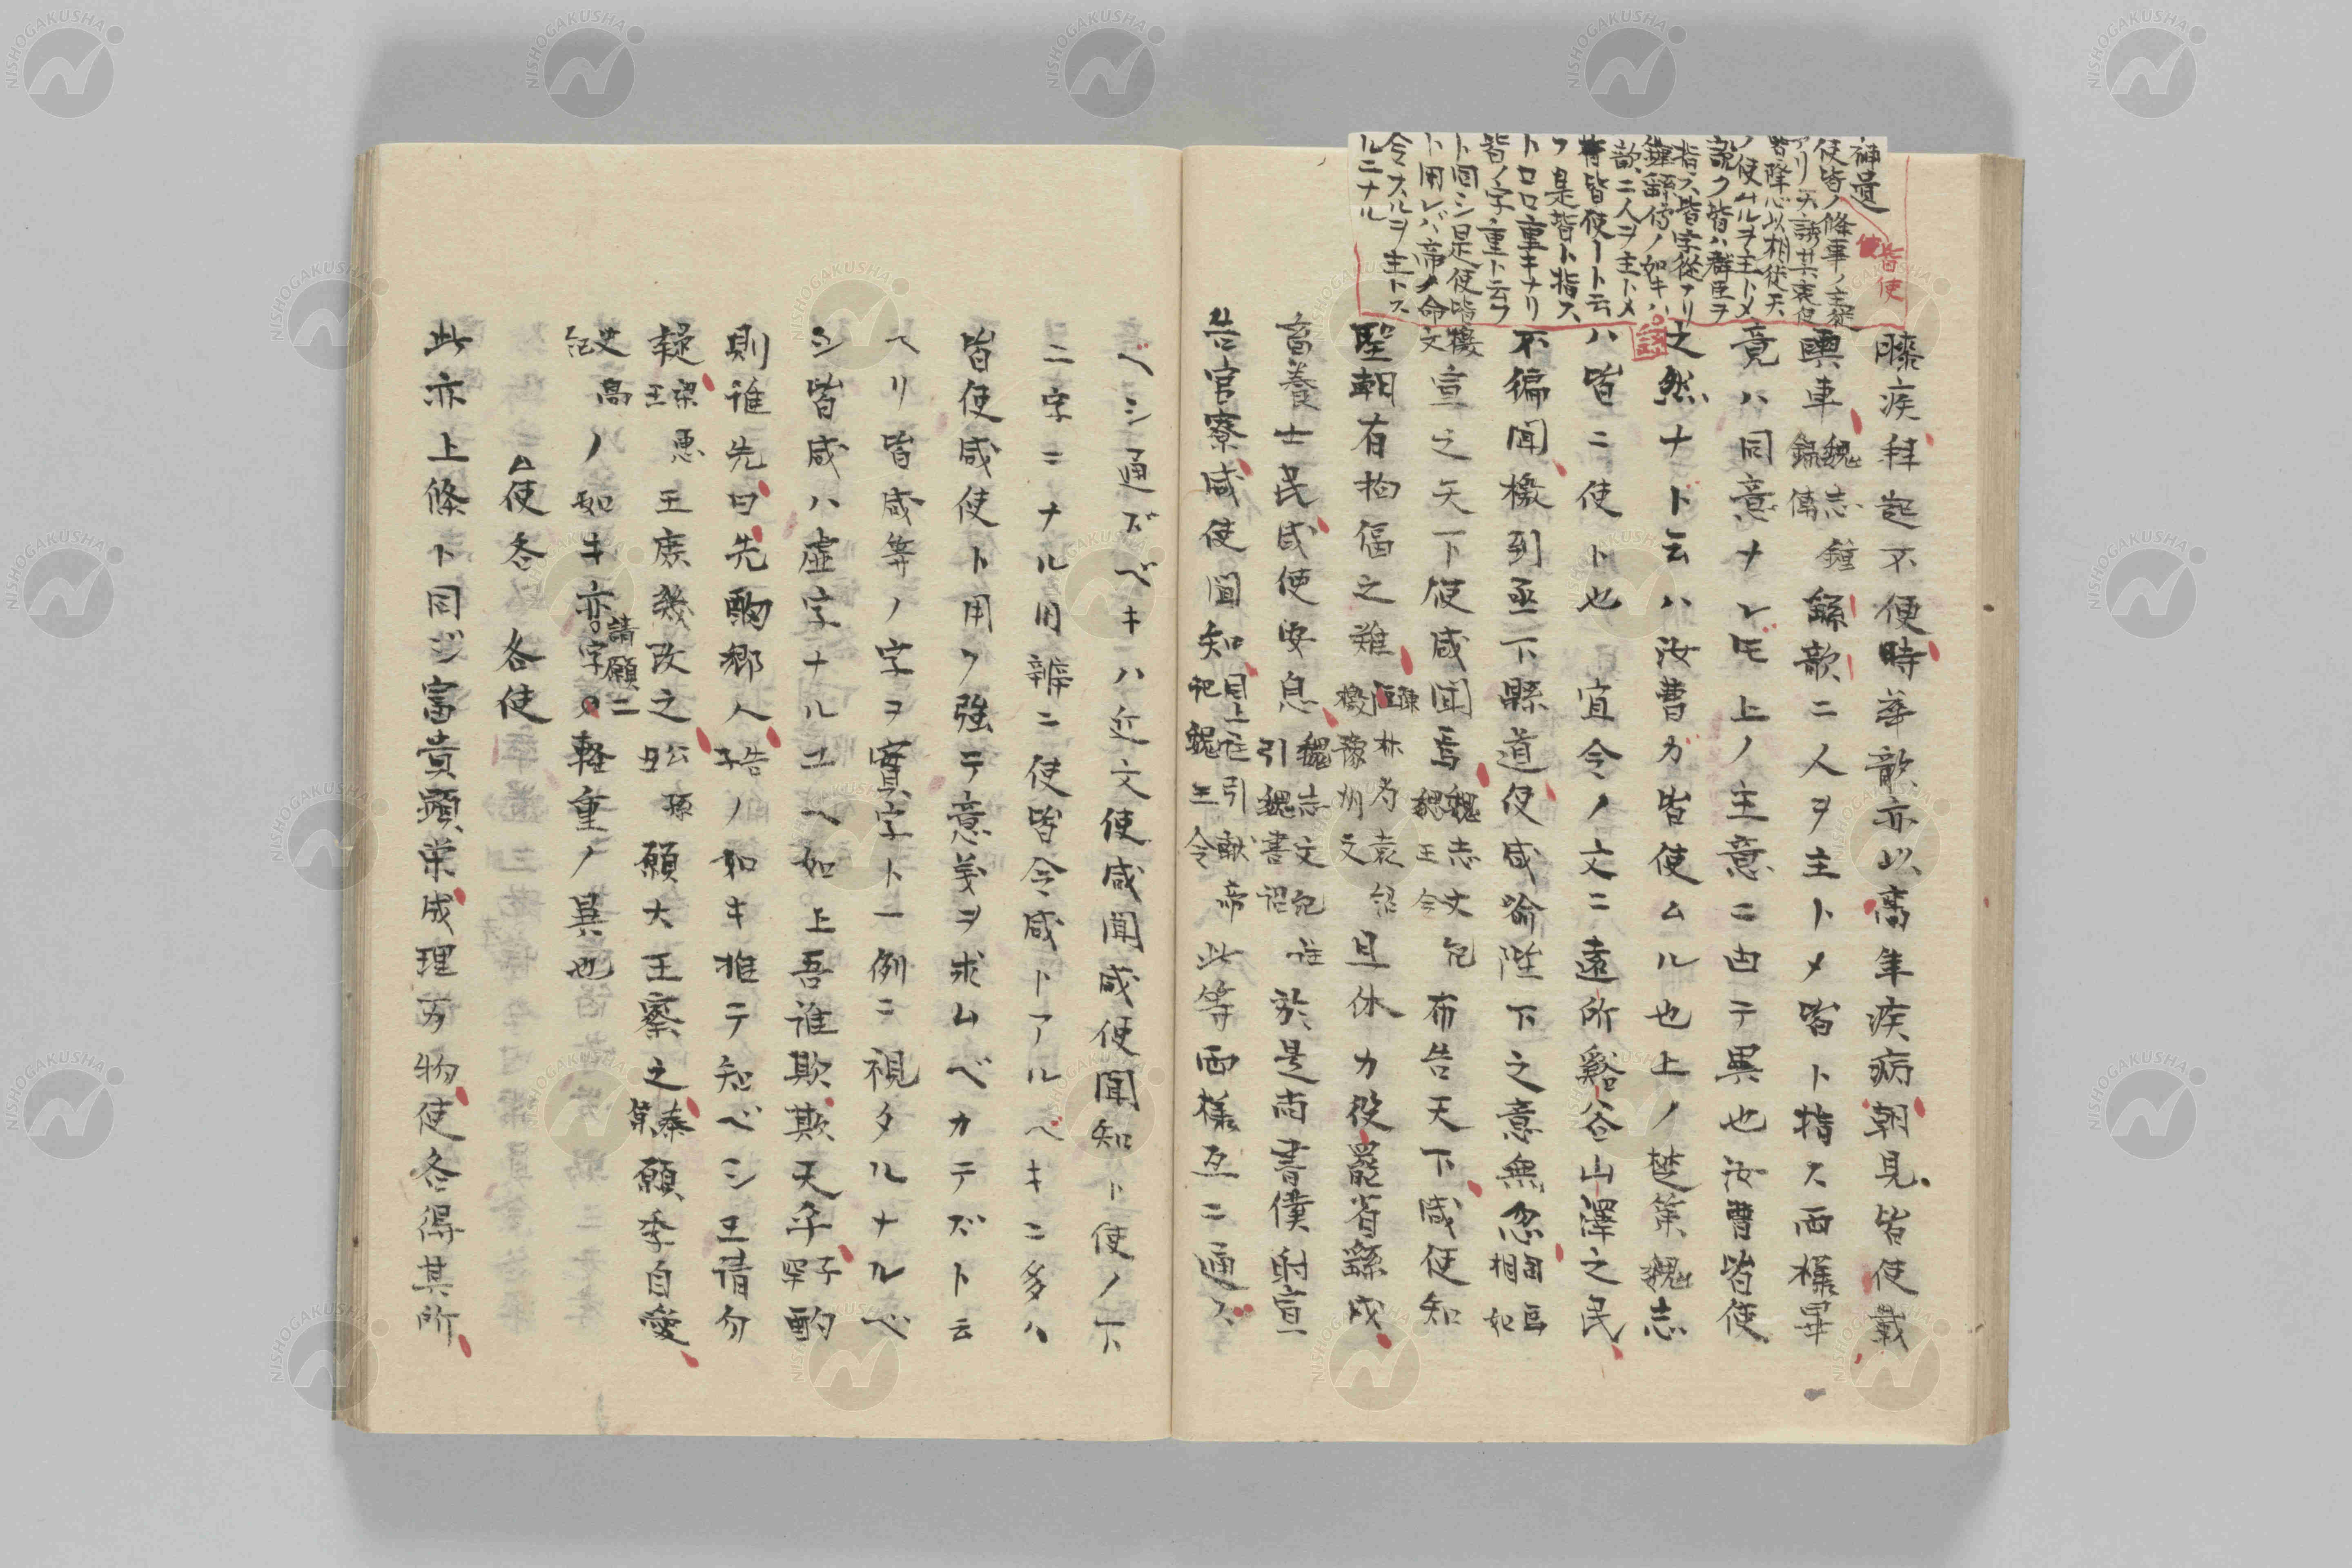 補遺
皆使
使皆ノ條事ノ主發
アリ天誘其衷使
皆降心以相從天
ノ使ムルヲ主トメ
説ク皆ハ群臣ヲ
指ス皆字從アリ
鍾繇傳ノ如キハ
歆二人ヲ主トメ
皆使ート云
フ是皆ト指ス
ト口口重キナリ
皆ノ字重ト云フ
ト同シ是使皆
ト用レバ帝ノ命
令スルヲ主トス
ルニナル
膝疾拜起不便時華歆亦以高年疾病朝見皆使載
輿車魏志鍾繇傳鍾繇歆二人ヲ主トメ皆ト指ス両樣畢
竟ハ同意ナレ𪜈上ノ主意ニ由テ異也汝曹皆使
之然ナト云ハ汝曹ガ皆使ムル也上ノ楚策魏志
ハ皆ニ使ト也 宜令ノ文ニ遠所谿谷山澤之民
不徧聞檄到亟下縣道使咸喩陛下之意無忽司馬相如
檄文宣之天下使咸聞焉魏志文紀魏王令布告天下咸使知
聖朝有拘偪之難陳琳為袁紹檄豫州文且休力役罷省繇戍
畜養士民咸使安息魏志文紀注引魏書詔於是尚書僕射宣
告官寮咸使聞知同上注引獻帝紀魏王令此等両樣互ニ通ズ
ベシ通ズベキハ近文使咸聞咸使聞知ト使ノ下
ニ字ニナル用辨ニ使皆令咸トアルベキニ多ハ
皆使咸使ト用フ強テ意義ヲ求ムベカラズト云
ヘリ皆咸等ノ字ヲ實字ト一例ニ視タルナルベ
シ皆咸ハ虚字ナルユヘ如上吾誰欺欺天乎子罕酌
則誰先曰先酌郷人告子ノ如キ推テ知ベシ王請勿
疑梁惠王王庶幾改之公孫丑願大王察之秦策願季自愛
史高紀ノ如キ亦請願二字ノ軽重ノ異也
△使各 各使
此亦上條ト同ジ富貴顯栄成理万物使各得其所